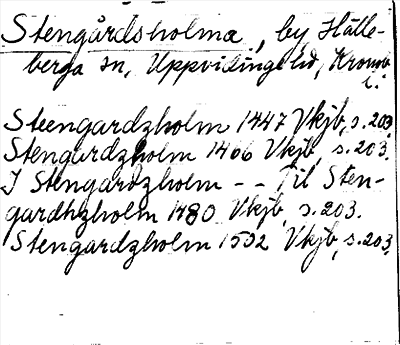 Stengårdsholma, by Hälle-
berga sn, Uppvidinge hd, Kronob.
l.
Steengardzholm 1447 Vkjb, s. 203.
Stengardzholm 1466 Vkjb, s. 203.
I Stengardzholm - - Til Sten-
gardhzholm 1480 Vkjb, s. 203.
Stengardzholm 1502 Vkjb, s. 203.